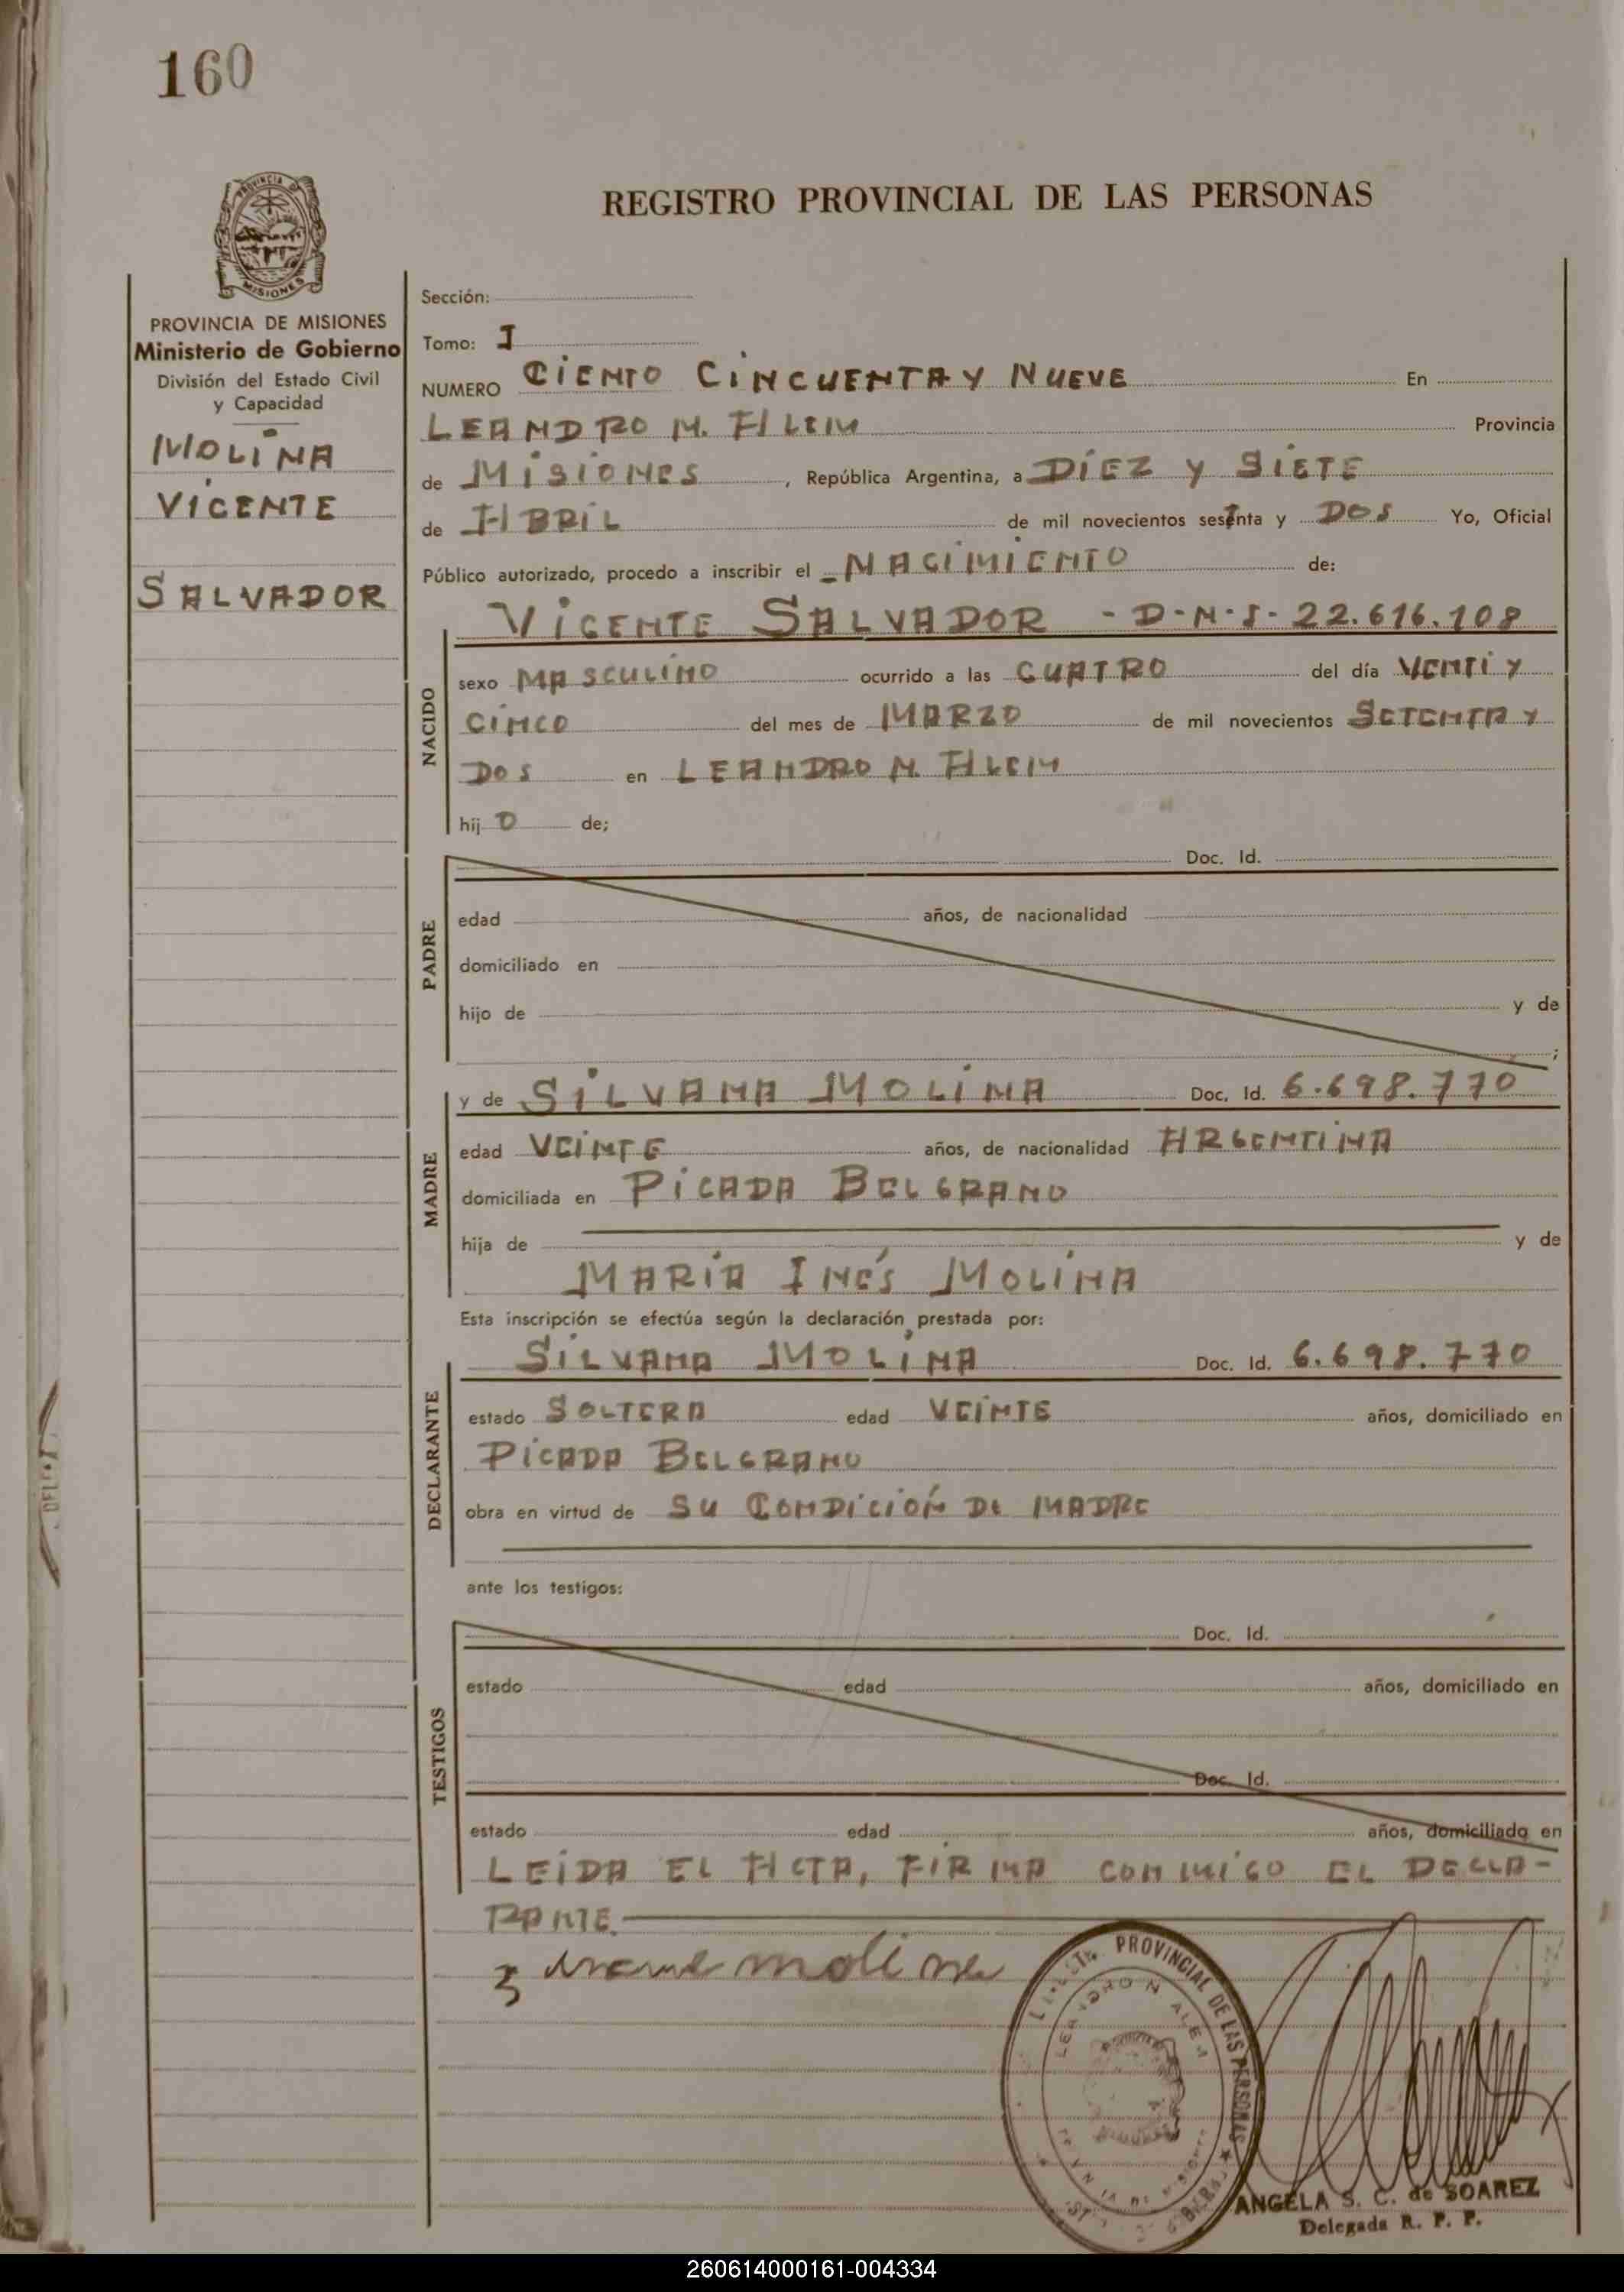 160
PROVINCIA DE
MISIONES
REGISTRO PROVINCIAL DE LAS PERSONAS
PROVINCIA DE MISIONES
Ministerio de Gobierno
División del Estado Civil
y Capacidad
MOLINA
VICENTE
SALVADOR
Sección:
Tomo: I
NUMERO CIENTO CINCUENTA Y NUEVE En
LEANDRO N. ALEM Provincia
de MISIONES, República Argentina, a DIEZ Y SIETE
de ABRIL de mil novecientos setenta y DOS Yo, Oficial
Público autorizado, procedo a inscribir el NACIMIENTO de:
VICENTE SALVADOR - D-N-I- 22.616.108
NACIDO
sexo MASCULINO ocurrido a las CUATRO del día VENTI Y
CINCO del mes de MARZO de mil novecientos SETENTA Y
DOS en LEANDRO N. ALEM
hij O de;
PADRE
Doc. Id.
edad años, de nacionalidad
domiciliado en
hijo de y de
;
MADRE
y de SILVANA MOLINA Doc. Id. 6.698.770
edad VEINTE años, de nacionalidad ARGENTINA
domiciliada en PICADA BELGRANO
hija de y de
MARÍA INÉS MOLINA
Esta inscripción se efectúa según la declaración prestada por:
DECLARANTE
SILVANA MOLINA Doc. Id. 6.698.770
estado SOLTERA edad VEINTE años, domiciliado en
PICADA BELGRANO
obra en virtud de SU CONDICIÓN DE MADRE
ante los testigos:
TESTIGOS
Doc. Id.
estado edad años, domiciliado en
Doc. Id.
estado edad años, domiciliado en
LEIDA EL ACTA, FIRMA CONMIGO EL DECLA-
RANTE.
moline
PROVINCIAL DE LAS PERSONAS
LEANDRO N ALEM
ANGELA S. C. de SOAREZ
Delegada R. P. P.
260614000161-004334